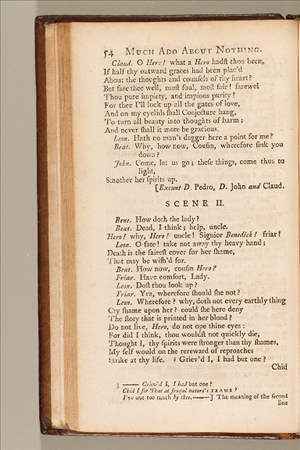 54 MUCH ADO ABOUT NOTHING.
Claud. O Hero! what a Hero hadst thou been,
If half thy outward graces had been plac'd
About the thoughts and counsels of thy heart?
But fare thee well, most foul, most fair! farewel
Thou pure impiety, and impious purity!
For thee I'll lock up all the gates of love,
And on my eyelids shall Conjecture hang,
To turn all beauty into thoughts of harm;
And never shall it more be gracious.
Leon. Hath no man's dagger here a point for me?
Beat. Why, how now, Cousin, wherefore sink you
down?
John. Come, let us go; these things, come thus to
light,
Smother her spirits up.
[Exeunt D. Pedro, D. John and Claud.
SCENE II.
Bene. How doth the lady?
Beat. Dead, I think; help, uncle.
Hero! why, Hero! uncle! Signior Benedick! friar!
Leon. O fate! take not away thy heavy hand;
Death is the fairest cover for her shame,
That may be wish'd for.
Beat. How now, cousin Hero?
Friar. Have comfort, Lady.
Leon. Dost thou look up?
Friar. Yea, wherefore should she not?
Leon. Wherefore? why, doth not every earthly thing
Cry shame upon her? could she here deny
The story that is printed in her blood?
Do not live, Hero, do not ope thine eyes:
For did I think, thou wouldst not quickly die,
Thought I, thy spirits were stronger than thy shames,
My self would on the rereward of reproaches
Strike at thy life. 3 Griev'd I, I had but one?
Chid
3 —— Griev'd I, I had but one?
Chid I for That at frugal nature's FRAME?
I've one too much by thee.——] The meaning of the second
line